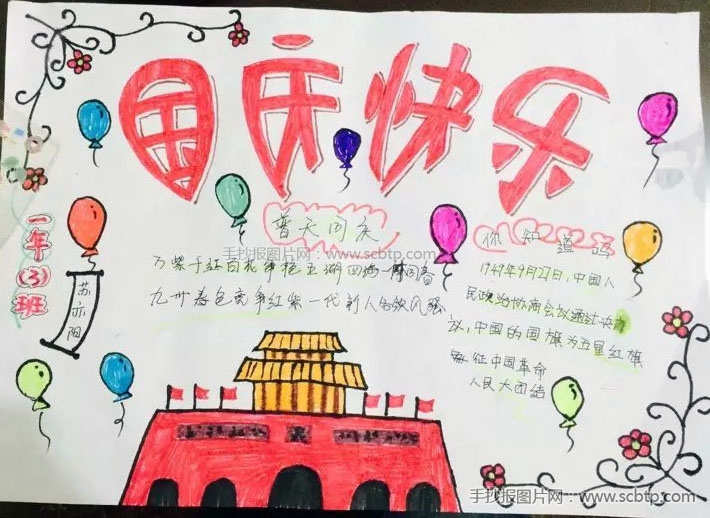 国庆快乐
普天同庆
手抄报图片网：www.scbtp.com
你知道吗
万紫千红百花争艳五湖四海一片同春
九州春色竞争红紫一代新人各领风骚
1949年9月27日,中国人
民政治协商会议通过决
议,中国的国旗为五星红旗
象征中国革命
人民大团结
一年(3)班
苏亦阳
手抄报图片网：www.scbtp.com